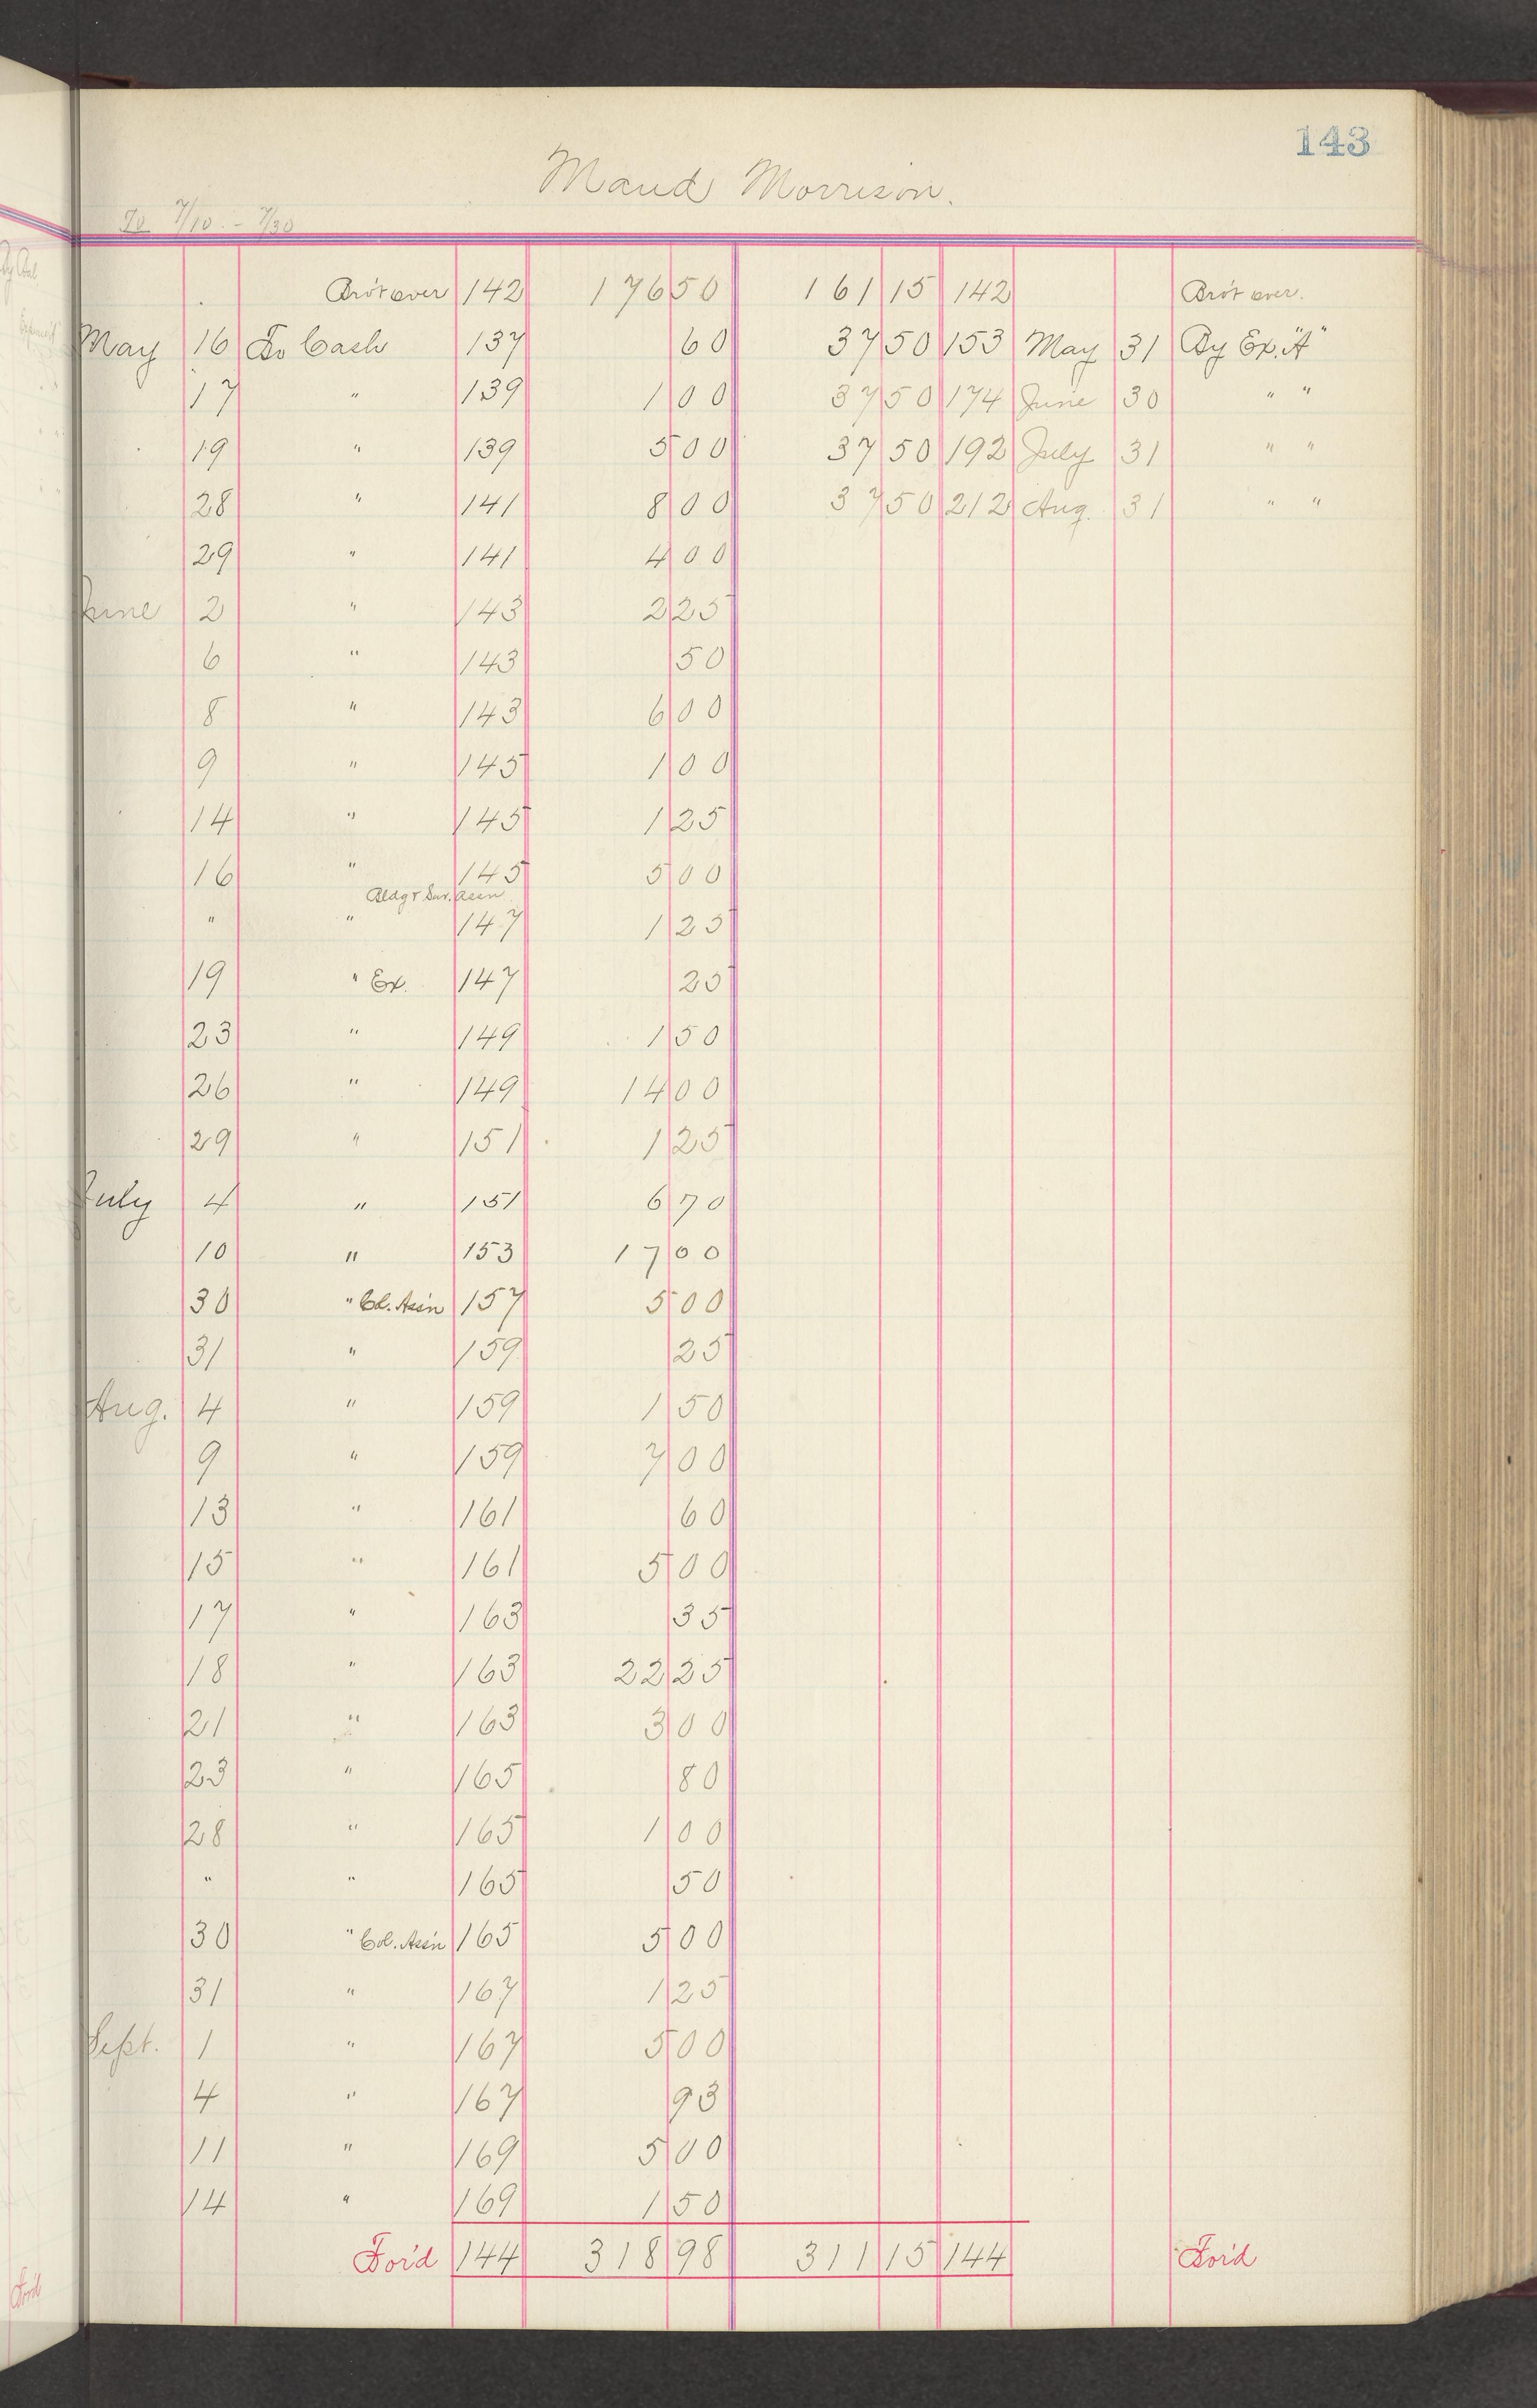 143
Maud Morrison.
To 7/10 - 7/30
Bro't over 142 176 50 161 15 142 Bro't over.
May 16 To Cash 137 60 37 50 153 May 31 By Ex. "A"
17 " 139 1 00 37 50 174 June 30 " "
19 " 139 5 00 37 50 192 July 31 " "
28 " 141 8 00 37 50 212 Aug. 31 " "
29 " 141 4 00
June 2 " 143 2 25
6 " 143 50
8 " 143 6 00
9 " 145 1 00
14 " 145 1 25
16 " 145 5 00
Bldg & Sav. Assn
" " 147 1 25
19 " Ex. 147 25
23 " 149 1 50
26 " 149 14 00
29 " 151 1 25
July 4 " 151 6 70
10 " 153 17 00
30 " Col. Ass'n 157 5 00
31 " 159 25
Aug. 4 " 159 1 50
9 " 159 7 00
13 " 161 60
15 " 161 5 00
17 " 163 35
18 " 163 22 25
21 " 163 3 00
23 " 165 80
28 " 165 1 00
" " 165 50
30 " Col. Ass'n 165 5 00
31 " 167 1 25
Sept. 1 " 167 5 00
4 " 167 93
11 " 169 5 00
14 " 169 1 50
For'd 144 318 98 311 15 144 For'd